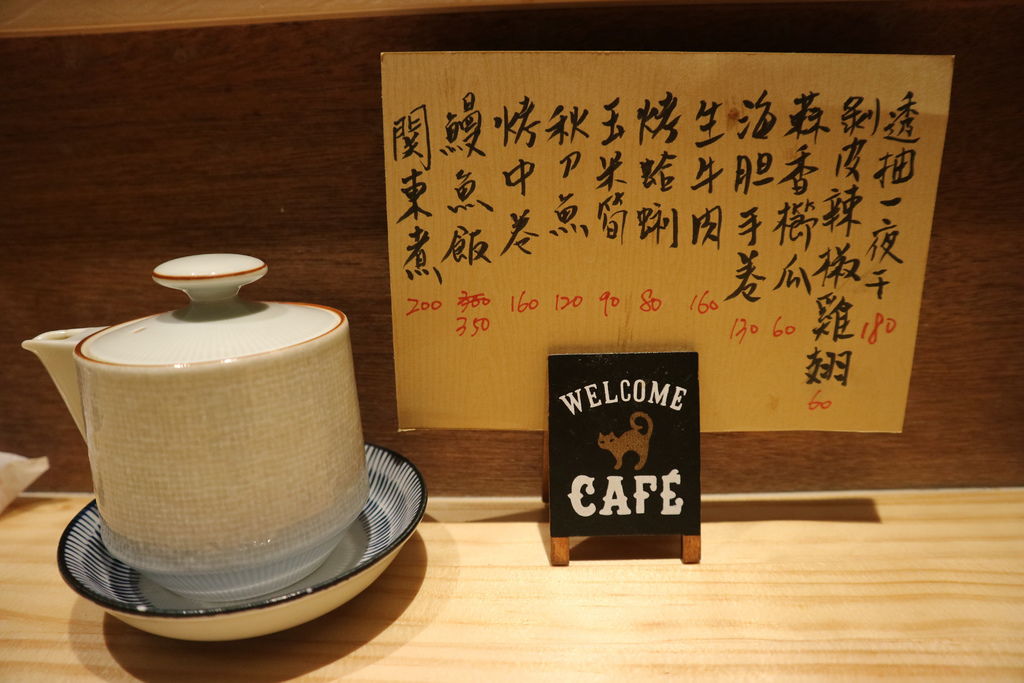 透抽一夜干 180
剝皮辣椒雞翅 60
蒜香櫛瓜 60
海胆手卷 130
生牛肉 160
烤蛤蜊 80
玉米筍 90
秋刀魚 120
烤中卷 160
鰻魚飯 350
関東煮 200
WELCOME
CAFÉ